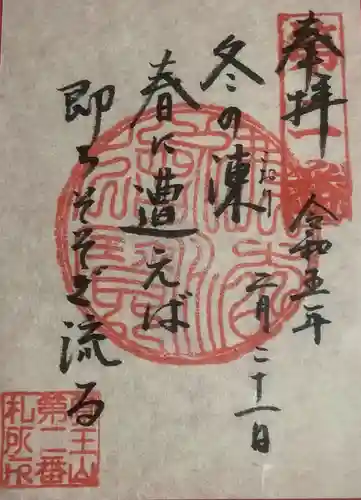 奉拝
令和五年
二月二十一日
冬の凍
こおり
春に遭えば
即ちそそぎ流る
王山
第二番
札所